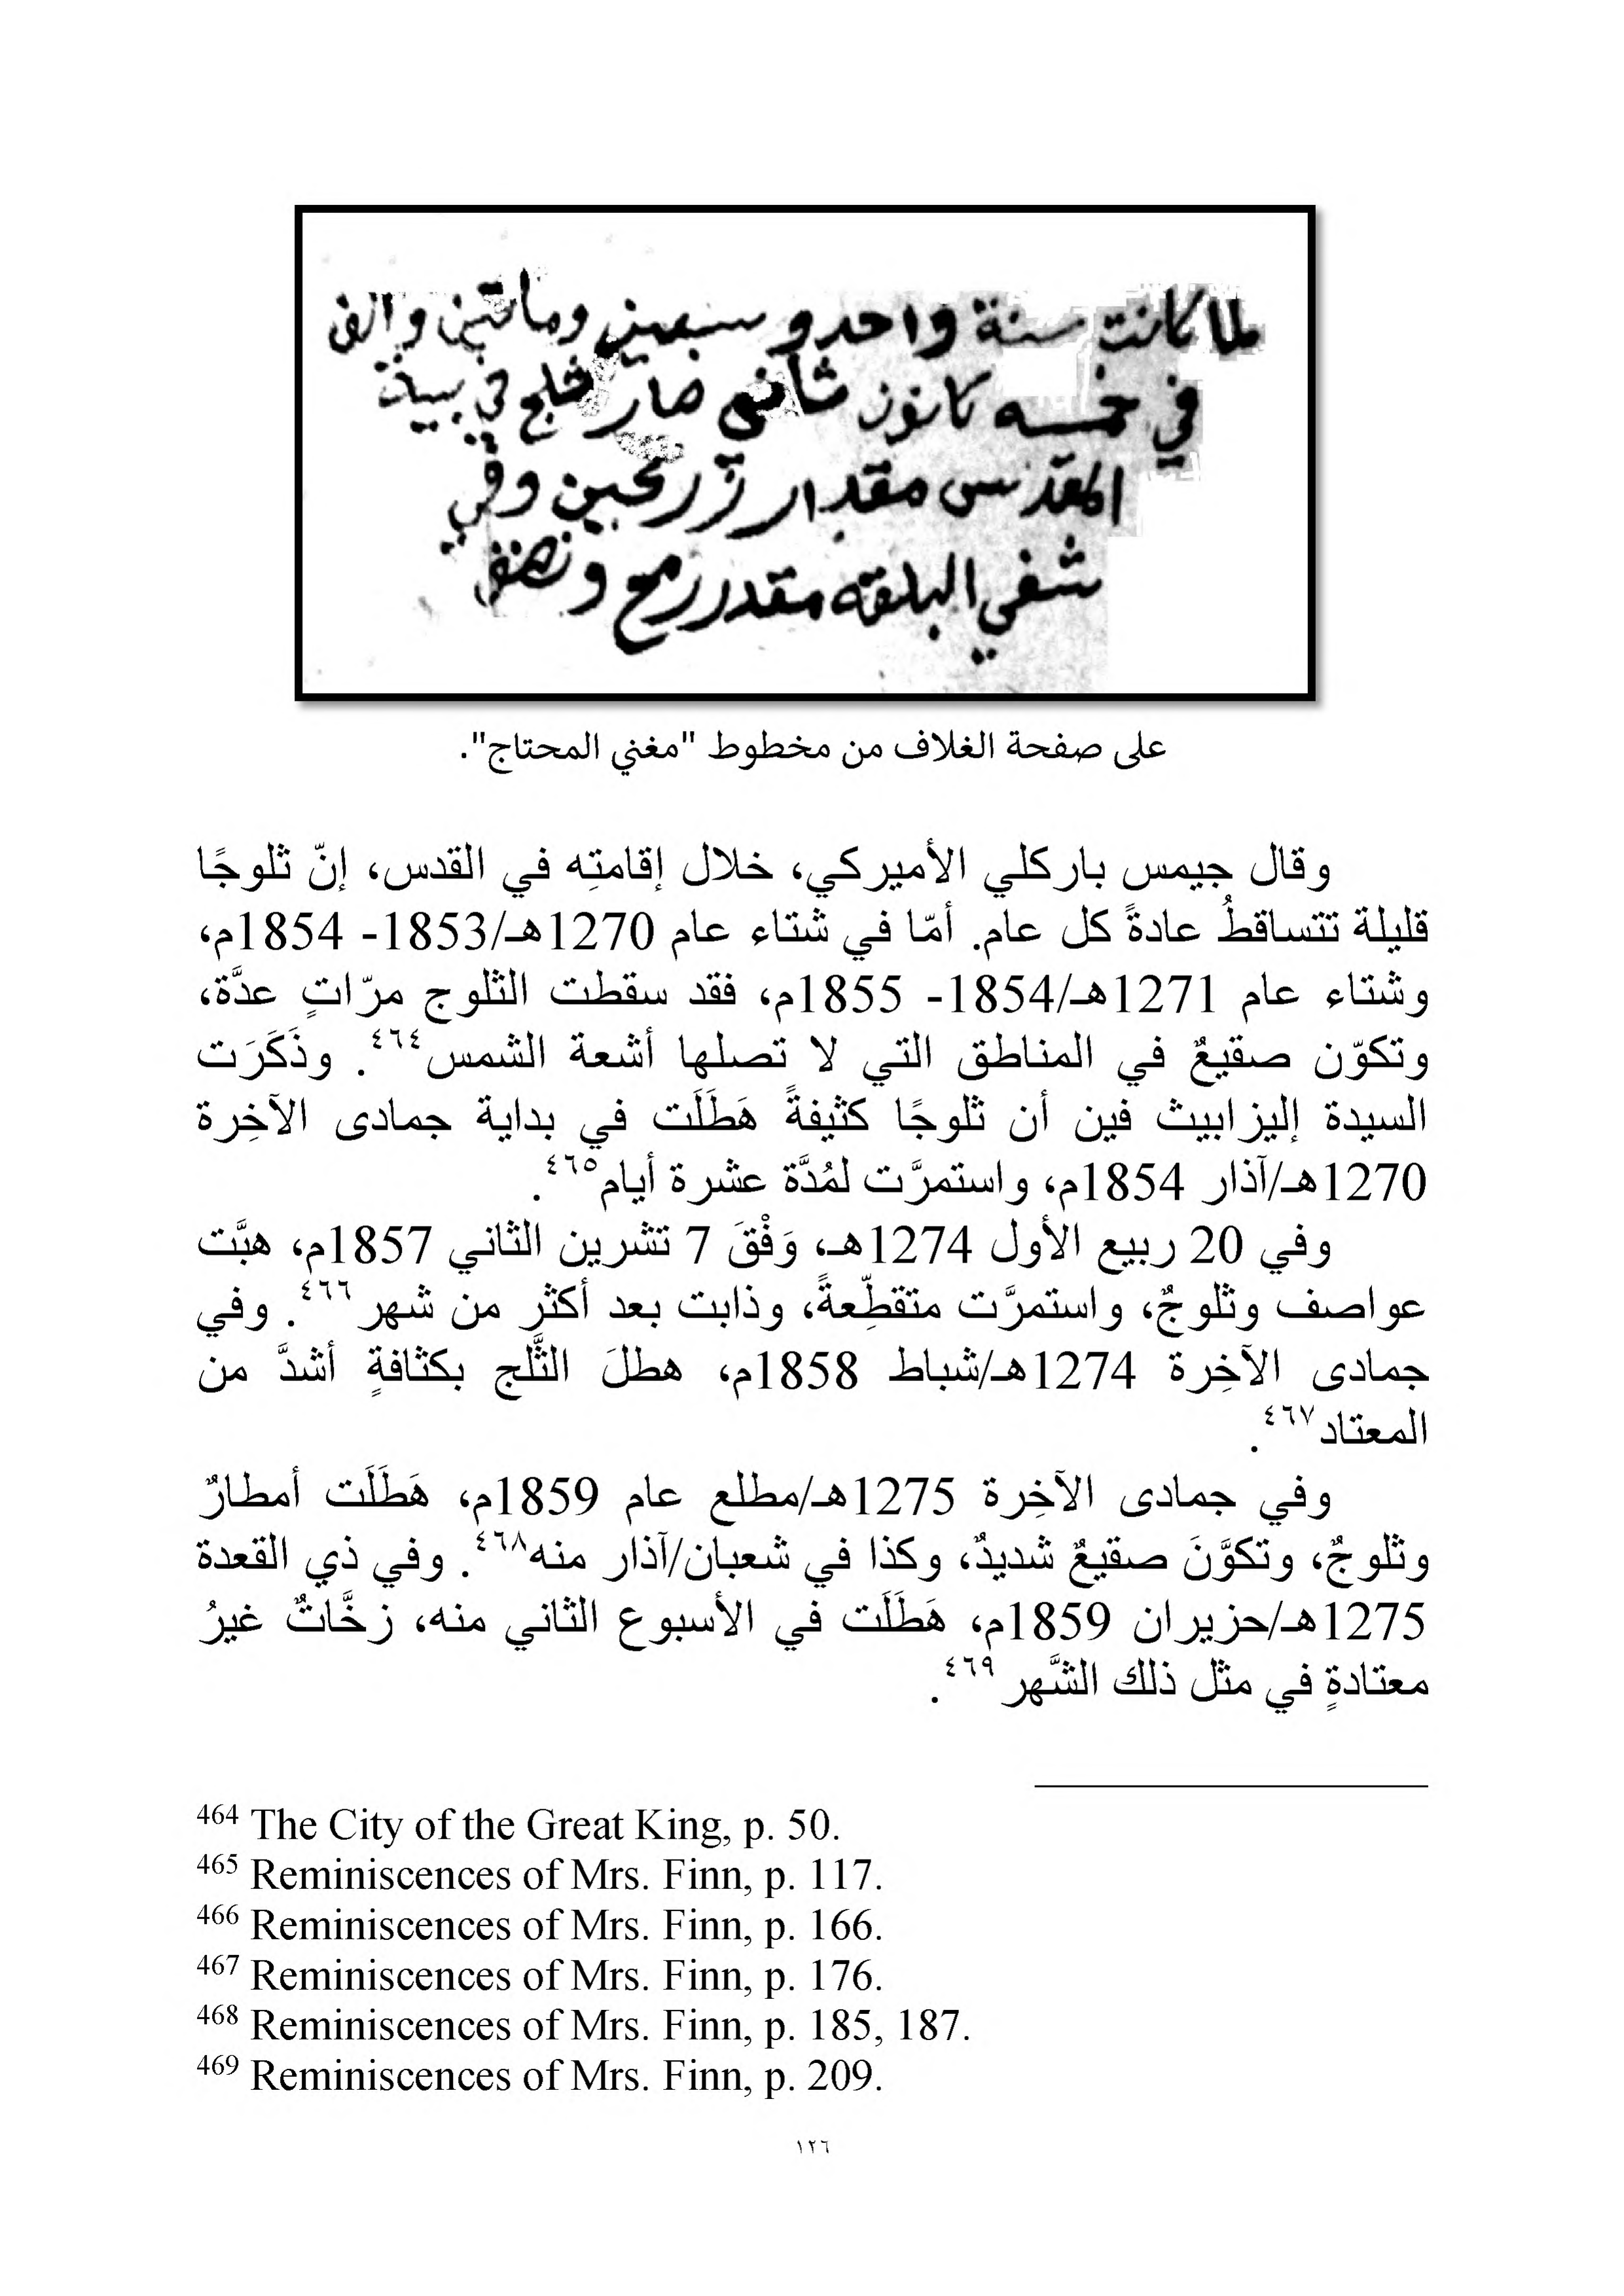 لما كانت سنة واحد و سبعين وماتين والف
في خمسه كانون ثاني صار ثلج في بيت
المقدس مقدار رمحين وفي
شفي البلقه مقدر رمح ونصف
على صفحة الغلاف من مخطوط "مغني المحتاج".
وقال جيمس باركلي الأميركي، خلال إقامتِه في القدس، إنّ ثلوجًا
قليلة تتساقطُ عادةً كل عام. أمّا في شتاء عام 1270هـ/1853- 1854م،
وشتاء عام 1271هـ/1854- 1855م، فقد سقطت الثلوج مرّاتٍ عدَّة،
وتكوّن صقيعٌ في المناطق التي لا تصلها أشعة الشمس٤٦٤. وذَكَرَت
السيدة إليزابيث فين أن ثلوجًا كثيفةً هَطَلَت في بداية جمادى الآخِرة
1270هـ/آذار 1854م، واستمرَّت لمُدَّة عشرة أيام٤٦٥.
وفي 20 ربيع الأول 1274هـ، وَفْقَ 7 تشرين الثاني 1857م، هبَّت
عواصف وثلوجٌ، واستمرَّت متقطِّعةً، وذابت بعد أكثر من شهر٤٦٦. وفي
جمادى الآخِرة 1274هـ/شباط 1858م، هطلَ الثَّلج بكثافةٍ أشدَّ من
المعتاد٤٦٧.
وفي جمادى الآخِرة 1275هـ/مطلع عام 1859م، هَطَلَت أمطارٌ
وثلوجٌ، وتكوَّنَ صقيعٌ شديدٌ، وكذا في شعبان/آذار منه٤٦٨. وفي ذي القعدة
1275هـ/حزيران 1859م، هَطَلَت في الأسبوع الثاني منه، زخَّاتٌ غيرُ
معتادةٍ في مثل ذلك الشَّهر٤٦٩.
464 The City of the Great King, p. 50.
465 Reminiscences of Mrs. Finn, p. 117.
466 Reminiscences of Mrs. Finn, p. 166.
467 Reminiscences of Mrs. Finn, p. 176.
468 Reminiscences of Mrs. Finn, p. 185, 187.
469 Reminiscences of Mrs. Finn, p. 209.
١٢٦